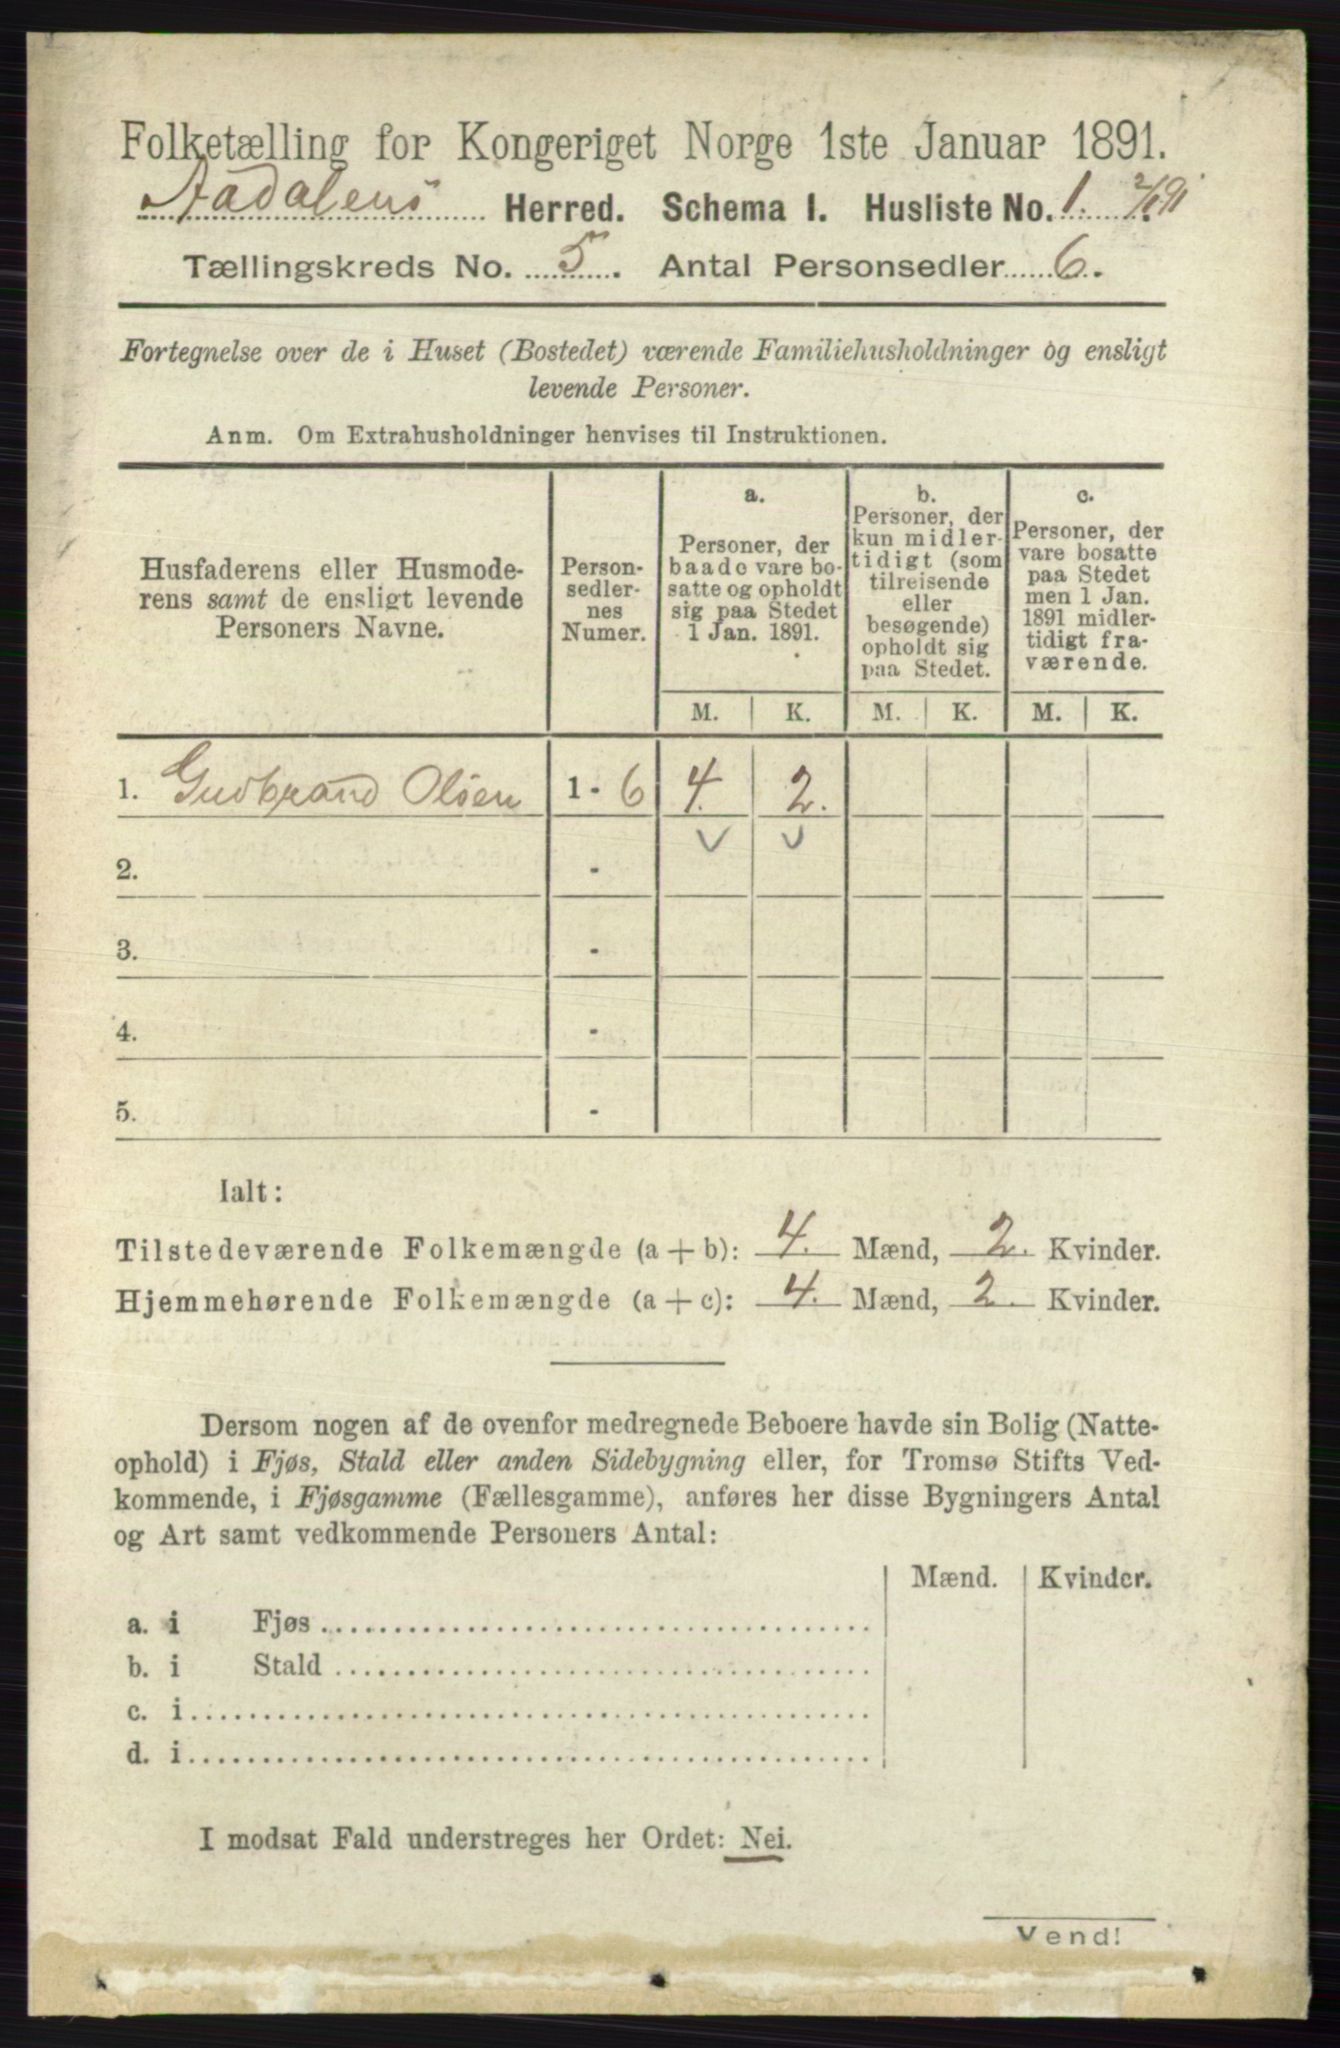 Folketælling for Kongeriget Norge 1ste Januar 1891.
Aadalens Herred. Schema I. Husliste No. 1.
Tællingskreds No. 5. Antal Personsedler 6.
Fortegnelse over de i Huset (Bostedet) værende Familiehusholdninger og ensligt
levende Personer.
Anm. Om Extrahusholdninger henvises til Instruktionen.
Husfaderens eller Husmode-
rens samt de ensligt levende
Personers Navne.
Person-
sedler-
nes
Numer.
a.
Personer, der
baade vare bo-
satte og opholdt
sig paa Stedet
1 Jan. 1891.
b.
Personer, der
kun midler-
tidigt (som
tilreisende
eller
besøgende)
opholdt sig
paa Stedet.
c.
Personer, der
vare bosatte
paa Stedet
men 1 Jan.
1891 midler-
tidigt fra-
værende.
M. K. M. K. M. K.
1. Gudbrand Olsen 1 - 6 4. 2.
2. -
3. -
4. -
5. -
Ialt:
Tilstedeværende Folkemængde (a + b): 4. Mænd, 2. Kvinder.
Hjemmehørende Folkemængde (a + c): 4. Mænd, 2. Kvinder.
Dersom nogen af de ovenfor medregnede Beboere havde sin Bolig (Natte-
ophold) i Fjøs, Stald eller anden Sidebygning eller, for Tromsø Stifts Ved-
kommende, i Fjøsgamme (Fællesgamme), anføres her disse Bygningers Antal
og Art samt vedkommende Personers Antal:
Mænd. Kvinder.
a. i Fjøs
b. i Stald
c. i
d. i
I modsat Fald understreges her Ordet: Nei.
Vend!